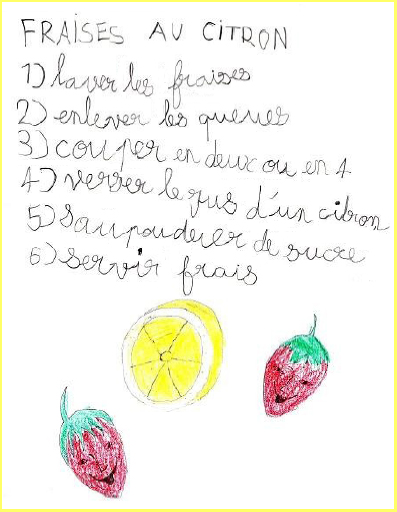 FRAISES AU CITRON
1) laver les fraises
2) enlever les queues
3) couper en deux ou en 4
4) verser le jus d'un citron
5) saupouderer de sucre
6) servir frais